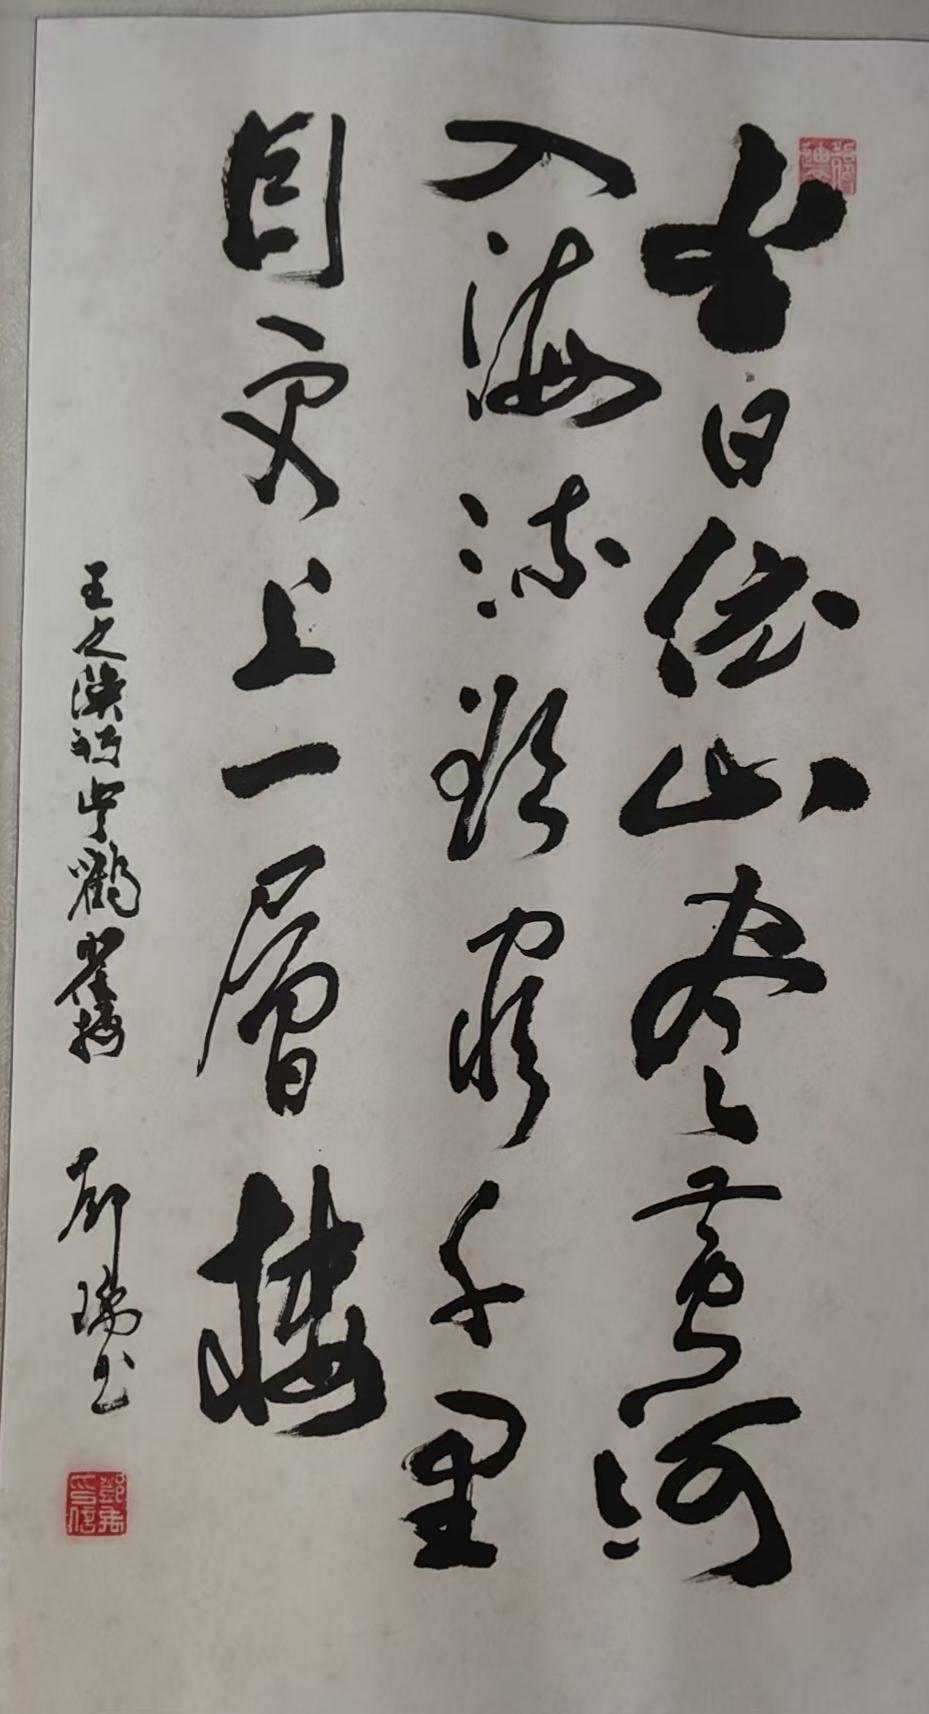 白日依山尽黄河
入海流欲穷千里
目更上一層楼
王之涣诗登鹳雀楼 瑞书